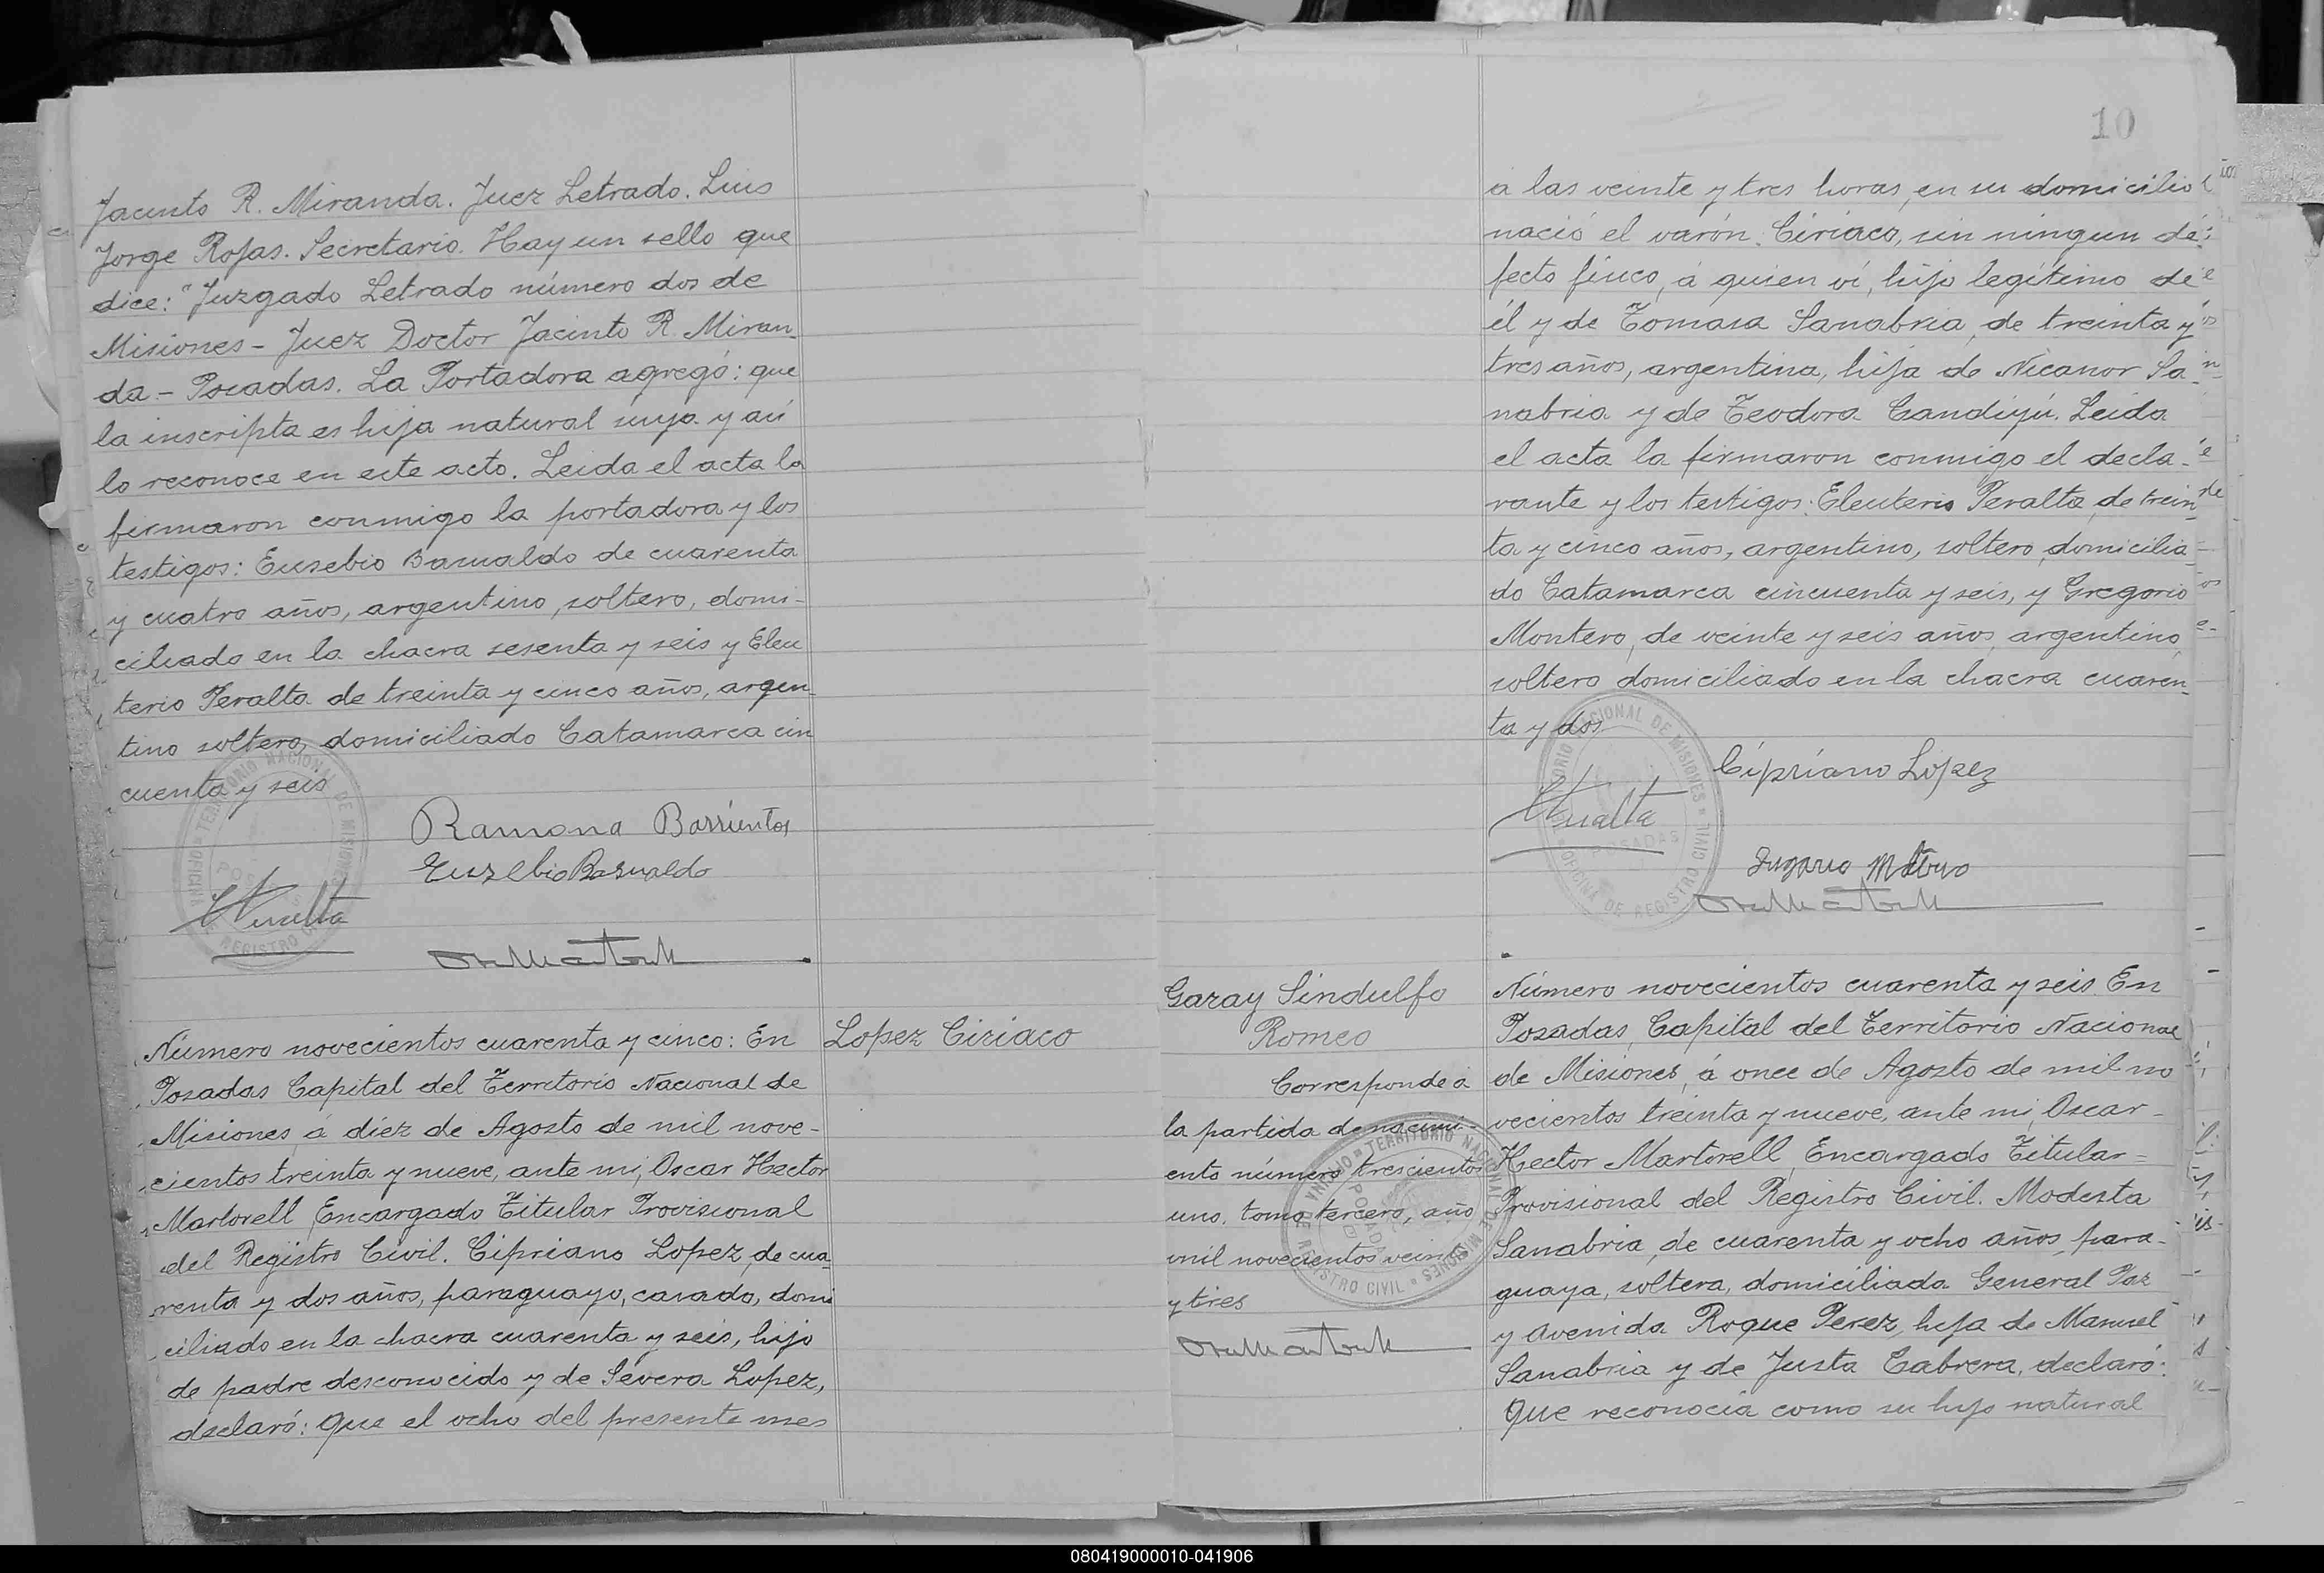 Jacinto R. Miranda. Juez Letrado. Luis
Jorge Rojas. Secretario. Hay un sello que
dice: "Juzgado Letrado número dos de
Misiones - Juez Doctor Jacinto R. Miran-
da - Posadas. La Portadora agregó: que
la inscripta es hija natural suya y así
lo reconoce en este acto. Leida el acta la
firmaron conmigo la portadora y los
testigos: Eusebio Basualdo de cuarenta
y cuatro años, argentino, soltero, domi-
ciliado en la chacra sesenta y seis y Eleu
terio Peralta de treinta y cinco años, argen-
tino soltero, domiciliado Catamarca cin
cuenta y seis
Ramona Barrientos
Eusebio Basualdo
TERRITORIO NACIONAL DE MISIONES
OFICINA DE REGISTRO CIVIL
Número novecientos cuarenta y cinco: En
Posadas Capital del Territorio Nacional de
Misiones, á diez de Agosto de mil nove-
cientos treinta y nueve, ante mi, Oscar Hector
Martorell, Encargado Titular Provisional
del Registro Civil. Cipriano Lopez, de cua
renta y dos años, paraguayo, casado, domi
ciliado en la chacra cuarenta y seis, hijo
de padre desconocido y de Severa Lopez,
declaró: Que el ocho del presente mes
Lopez Ciriaco
10
á las veinte y tres horas, en su domicilio
nació el varón, Ciriaco, sin ningun de-
fecto físico, á quien ví, hijo legítimo de
él y de Tomasa Sanabria, de treinta y
tres años, argentina, hija de Nicanor Sa-
nabria y de Teodora Candiyú. Leida
el acta la firmaron conmigo el decla-
rante y los testigos: Eleuterio Peralta, de trein-
ta y cinco años, argentino, soltero, domicilia-
do Catamarca cincuenta y seis, y Gregorio
Montero, de veinte y seis años, argentino,
soltero domiciliado en la chacra cuaren-
ta y dos
TERRITORIO NACIONAL DE MISIONES
POSADAS
OFICINA DE REGISTRO CIVIL
Cipriano Lopez
Garay Sindulfo
Romeo
Corresponde á
la partida de nacimi-
ento número trescientos
uno, tomo tercero, año
mil novecientos veinte
y tres
TERRITORIO NACIONAL DE MISIONES
POSADAS
OFICINA DE REGISTRO CIVIL
Número novecientos cuarenta y seis. En
Posadas, Capital del Territorio Nacional
de Misiones, á once de Agosto de mil no
vecientos treinta y nueve, ante mi, Oscar-
Hector Martorell, Encargado Titular=
Provisional del Registro Civil. Modesta
Sanabria, de cuarenta y ocho años, para-
guaya, soltera, domiciliada General Paz
y Avenida Roque Perez, hija de Manuel
Sanabria y de Justa Cabrera, declaró:
Que reconocia como su hijo natural
080419000010-041906